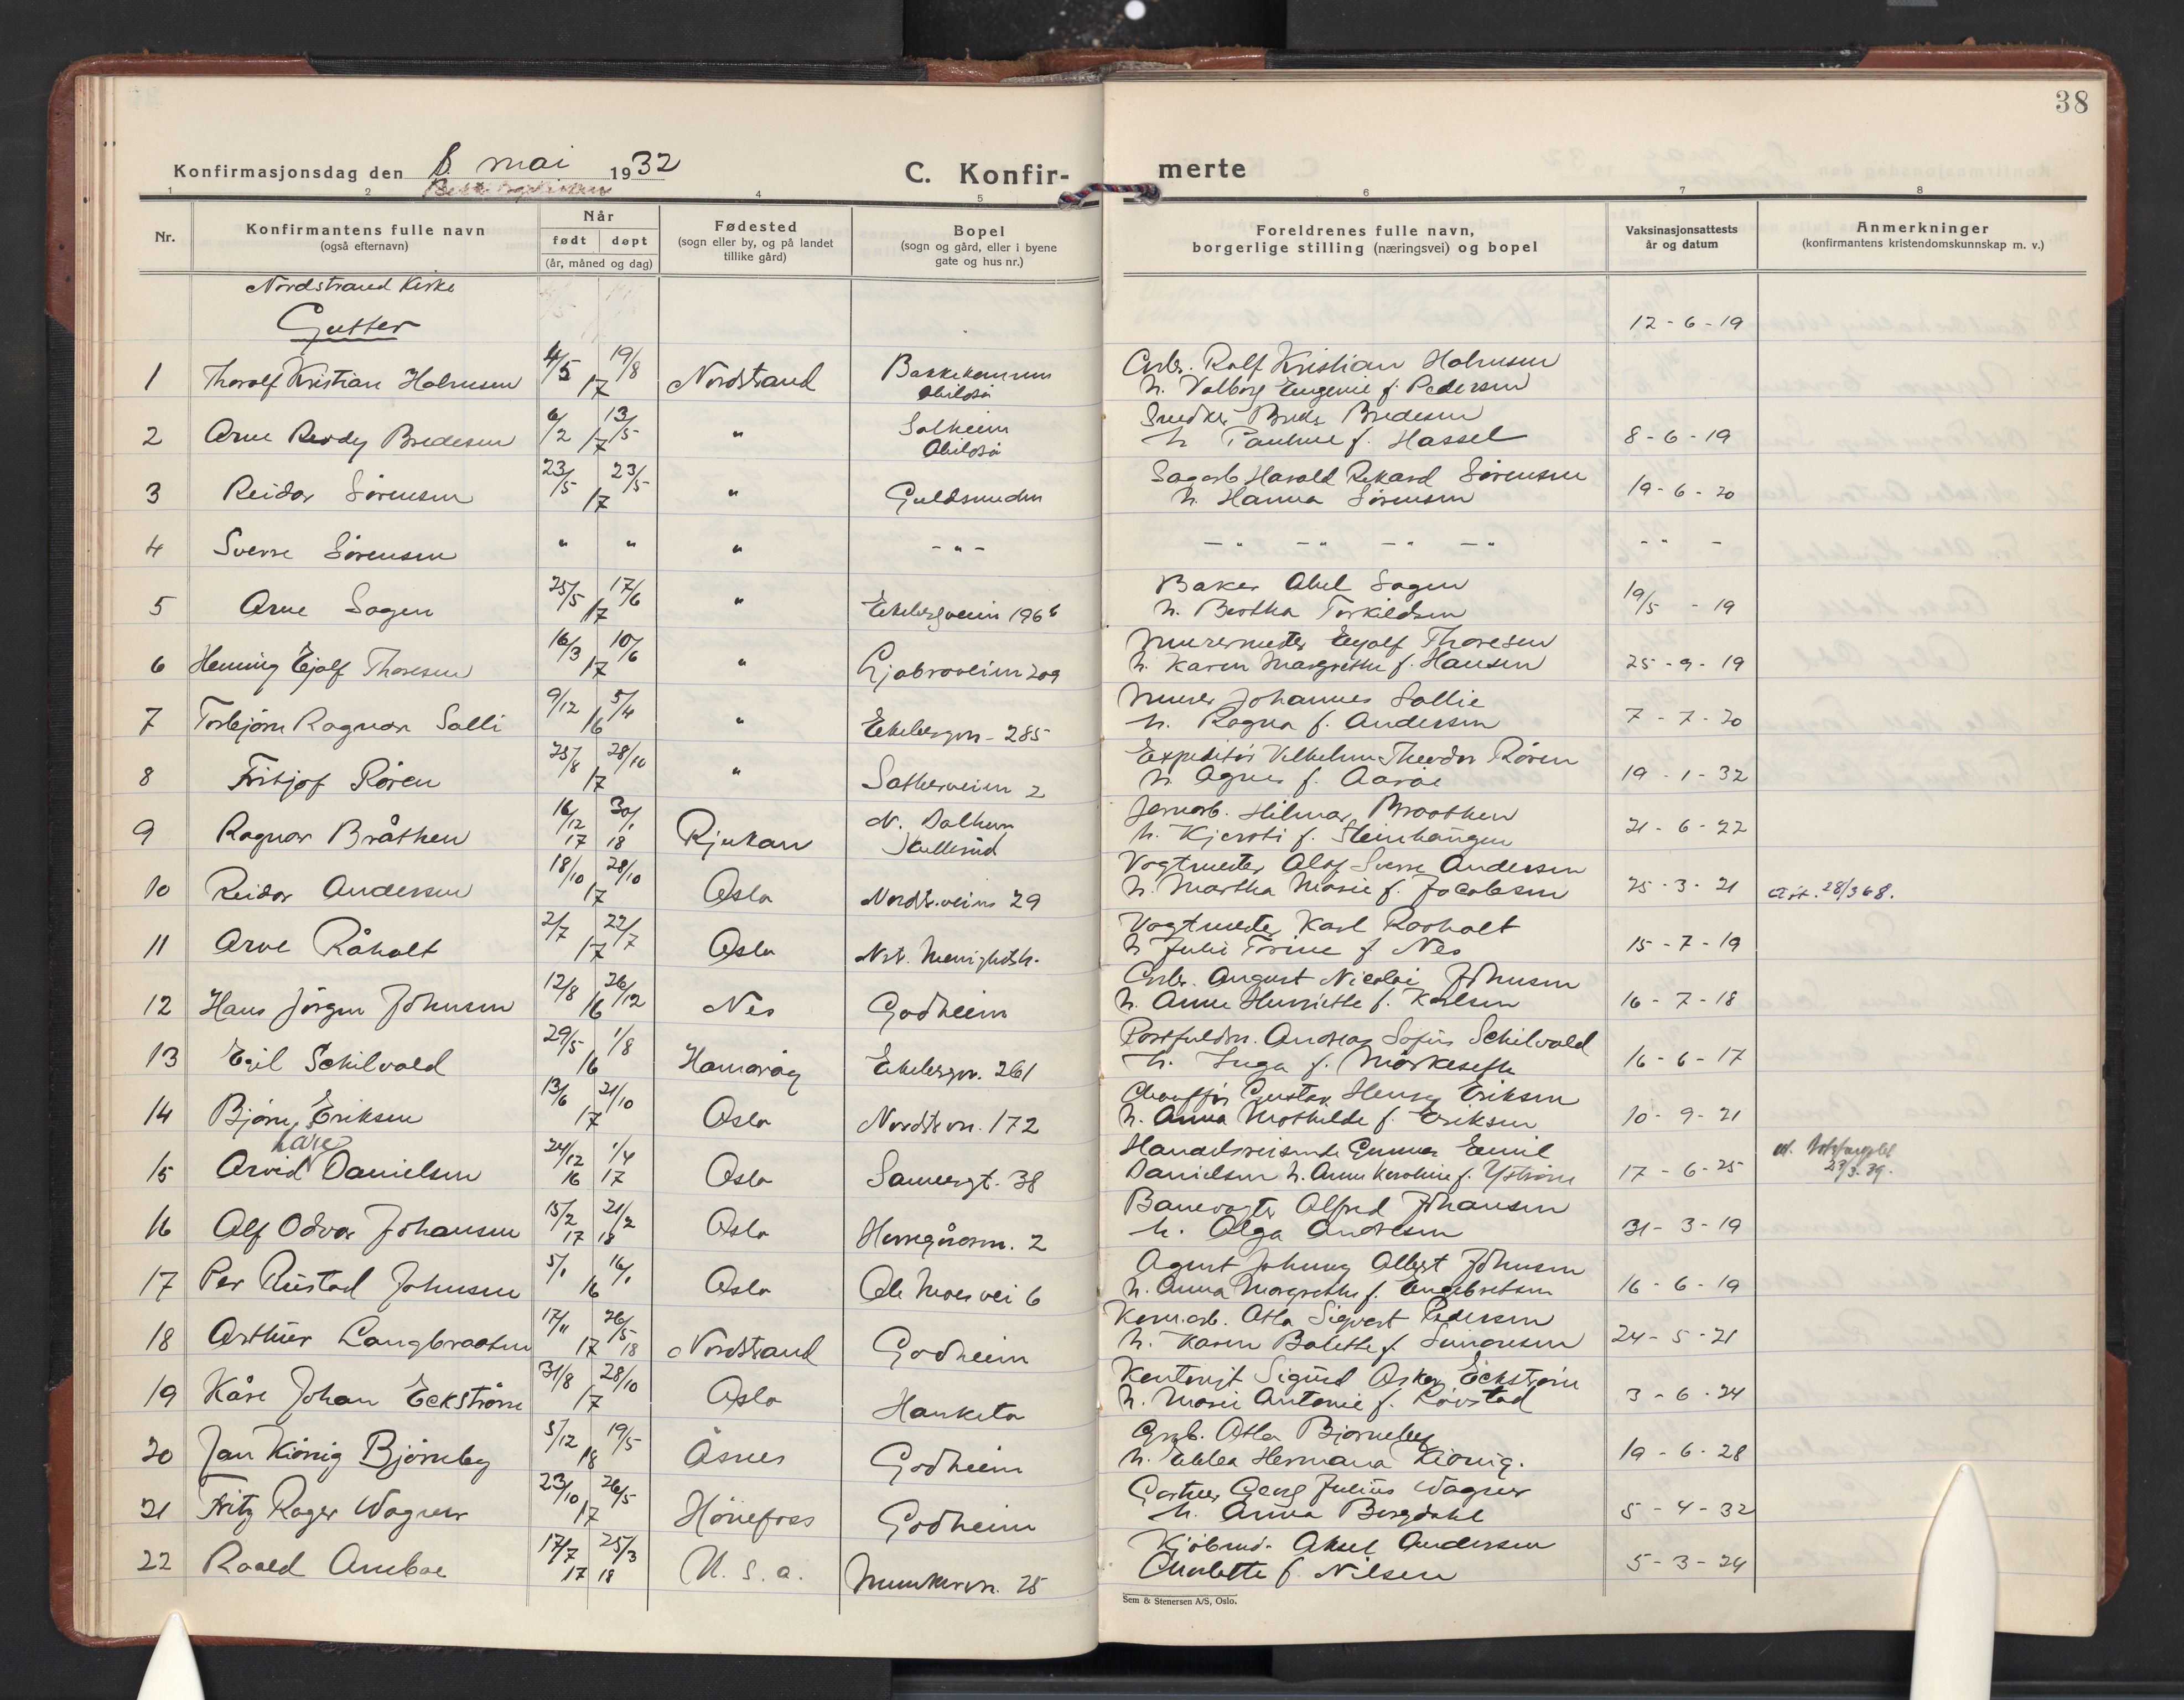 38
Konfirmasjonsdag den 8. mai 1932
C. Konfir- merte
1 2 4 5 6 7 8
Nr. Konfirmantens fulle navn (også efternavn) Når født døpt (år, måned og dag) Fødested (sogn eller by, og på landet tillike gård) Bopel (sogn og gård, eller i byene gate og hus nr.) Foreldrenes fulle navn, borgerlige stilling (næringsvei) og bopel Vaksinasjonsattests år og datum Anmerkninger (konfirmantens kristendomskunnskap m. v.)
Nordstrand Kirke
Gutter 12-6-19
1 Thorolf Kristian Holmsen 4/5 19/8 17 Nordstrand Abildsø Rolf Kristian Holmsen
h. Valborg Eugenie f. Pedersen
2 Arne Reidy Bredesen 6/2 13/5 17 " Solheim Abildsø Snedker Bredesen
h. Pauline f. Hassel 8-6-19
3 Reidar Sørensen 23/5 23/5 17 " Guldsmeden Sagarb. Harald Rikard Sørensen
h. Hanna Sørensen 19-6-20
4 Sverre Sørensen " " " - " - - " - " - " - " - " -
5 Arne Sagen 25/5 17/6 17 " Ekebergveien 196 b Baker Abel Sagen
h. Bertha Torkildsen 19/5 - 19
6 Henning Ejolf Thoresen 16/3 10/6 17 " Ljabroveien 209 Murermester Eyolf Thoresen
h. Karen Margrethe f. Hansen 25-9-19
7 Torbjørn Ragnar Solli 9/12 5/4 16 " Ekebergvn. 285 Murer Johannes Sollie
h. Ragna f. Andersen 7-7-20
8 Fritjof Røren 25/8 28/10 17 " Sætherveien 2 Expeditør Vilhelm Theodor Røren
h. Agnes f. Aarøe 19-1-32
9 Ragnar Bråthen 16/12 17 30/1 18 Rjukan N. Dalheim Skullerud Jernarb. Hilmar Braathen
h. Kjersti f. Steinhaugen 21-6-22
10 Reidar Andersen 18/10 28/10 17 Oslo Nordstr.veien 29 Vogtmester Olaf Sverre Andersen
h. Martha Marie f. Jacobsen 25-3-21 28/3 68.
11 Arve Råholt 2/7 22/7 17 Oslo Nst. Menighetsh. Vogtmester Karl Raaholt
h. Julie Torine f. Nes 15-7-19
12 Hans Jørgen Johnsen 12/8 26/12 16 Nes Godheim August Nicolai Johnsen
h. Anne Henriette f. Karlsen 16-7-18
13 Egil Schilvold 29/5 1/8 16 Hamarøy Ekebergvn. 261 Postfuldm. Andreas Sofus Schilvold
h. Inga f. 16-6-17
14 Bjørn Eriksen 13/6 21/10 17 Oslo Nordstr.vn. 172 Chauffør Gustav Henry Eriksen
h. Anna Mathilde f. Eriksen 10-9-21
15 Arvid Kåre Danielsen 24/12 16 1/4 17 Oslo Sannergt. 38 Handelsreisende Gunnar Emil
Danielsen h. Anna Karoline f. Yström 17-6-25 23/3.39.
16 Alf Odvar Johansen 15/2 17 21/2 18 Oslo Herregårdsvn. 2 Banevogter Alfred Johansen
h. Olga Andresen 31-3-19
17 Per Rustad Johnsen 5/1 16/1 16 Oslo Ole Moes vei 6 Agent Johnny Albert Johnsen
h. Anna Margrethe f. Engebretsen 16-6-19
18 Arthur Langbraaten 17/11 17 26/5 18 Nordstrand Godheim Otto Sigvart Pedersen
h. Karen Bolette f. Simonsen 24-5-21
19 Kåre Johan Eckstrøm 31/8 28/10 17 Oslo Hauketo Kontorist Sigurd Oskar Eckstrøm
h. Marie Antonie f. Røvstad 3-6-24
20 Jan Kiönig Bjørneby 5/12 19/5 18 Åsnes Godheim Grb. Otto Bjørneby
h. Ebba Hermana Kiönig. 19-6-28
21 Fritz Roger Wagner 23/10 26/5 17 Hønefoss Godheim Gartner Georg Julius Wagner
h. Anna Bergdahl 5-4-32
22 Roald Amboe 17/7 17 25/3 18 U.S.A. Munkervn. 25 Kjøbmd. Aksel Andersen
Charlotte f. Nilsen 5-3-24
Sem & Stenersen A/S, Oslo.